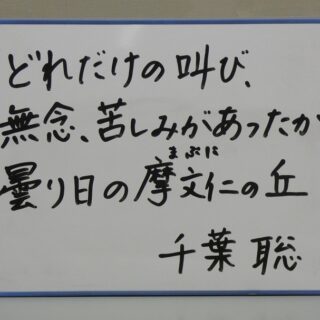 どれだけの叫び、
無念、苦しみがあったか
曇り日の摩文仁の丘
まぶに
千葉聡